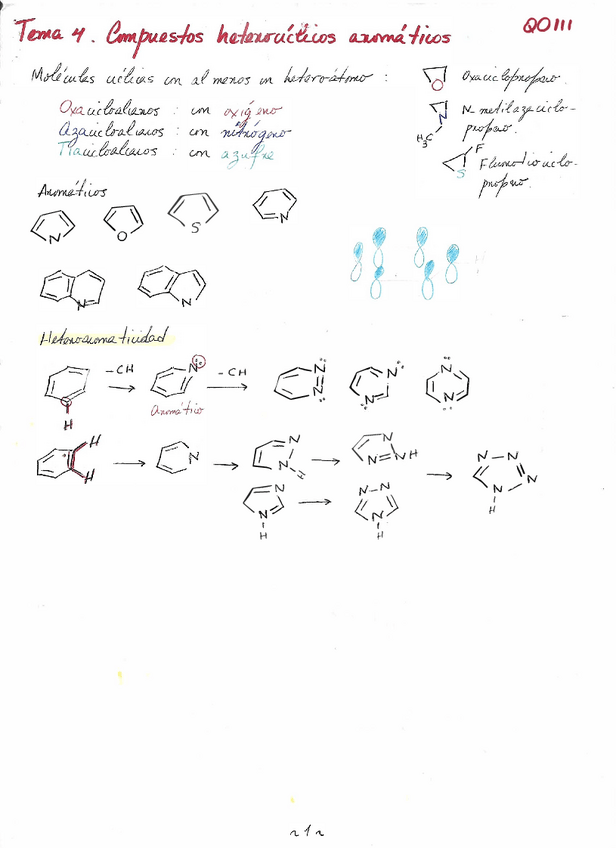 Tema 4. Compuestos heterocíclicos aromáticos
QOIII
Moléculas cíclicas con al menos un heteroátomo :
Oxaciclopropano.
Oxacicloalcanos : con oxígeno
Azacicloalcanos : con nitrógeno
Tiacicloalcanos : con azufre
N-metilazaciclo-
propano.
H3C
N
O
S
F
Fluorotiociclo-
propano.
Aromáticos
N
O
S
N
N
N
Heteroaromaticidad
-CH
N
-CH
N
N
N
N
N
N
H
Aromático
H
H
N
N
N
H
N
N
NH
N
N
H
N
N
N
H
N
N
N
N
N
H
~1~